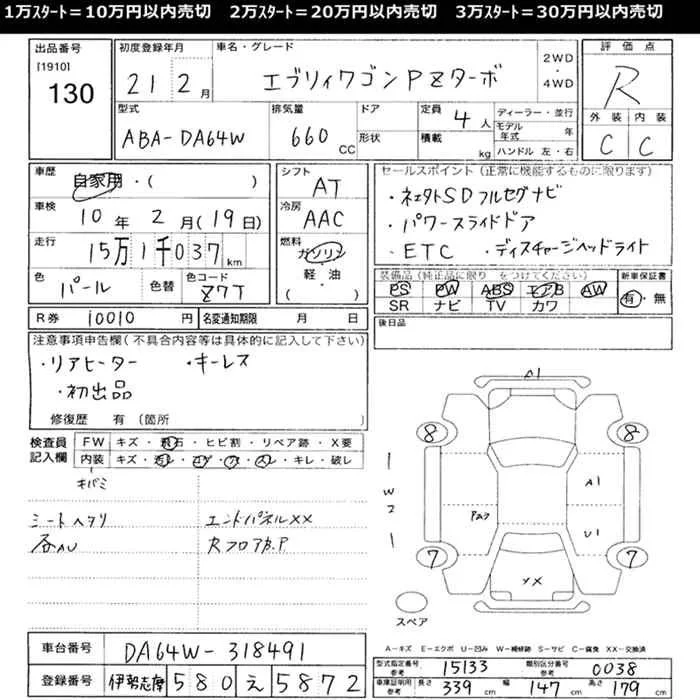 1万ｽﾀｰﾄ＝10万円以内売切　2万ｽﾀｰﾄ＝20万円以内売切　3万ｽﾀｰﾄ＝30万円以内売切
出品番号
[1910]
130
初度登録年月
21 2月
車名・グレード
エブリィワゴンPZターボ
2WD
・
4WD
評価点
R
外装 内装
C C
型式
ABA-DA64W
排気量
660 CC
ドア
形状
定員 4人
積載 kg
ディーラー・並行
モデル年式 年
ハンドル 左・右
車歴
自家用・( )
車検
10年 2月(19日)
走行
15万1千037km
色
パール
色替
色コード
Z7T
シフト
AT
冷房
AAC
燃料
ガソリン
軽・油
( )
セールスポイント(正常に機能するものに限ります)
・ネェクトSDフルセグナビ
・パワースライドドア
・ETC ・ディスチャージヘッドライト
装備品(純正品に限り をつけてください)
PS PW ABS エアB AW
SR ナビ TV カワ
新車保証書
有・無
R券 10010円
名変通知期限 月 日
後日品
注意事項申告欄(不具合内容等は具体的に記入して下さい)
・リアヒーター ・キーレス
・初出品
修復歴 有(箇所
検査員記入欄
FW キズ・飛石・ヒビ割・リペア跡・X要
内装 キズ・汚レ・コゲ・穴・スレ・キレ・破レ
キバミ
シートヘタリ
各AU
エンドパネルXX
RフロアB.P
A1
8 8
W2
A1
U1
7 7
XX
スペア
A－キズ E－エクボ U－凹み W－補修跡 S－サビ C－腐食 XX－交換済
車台番号
DA64W-318491
登録番号
伊勢志摩 580 え 5872
型式指定番号 参考 15133
類別区分番号 参考 0038
車庫証明用 参考 長さ 339cm 幅 147cm 高さ 179cm